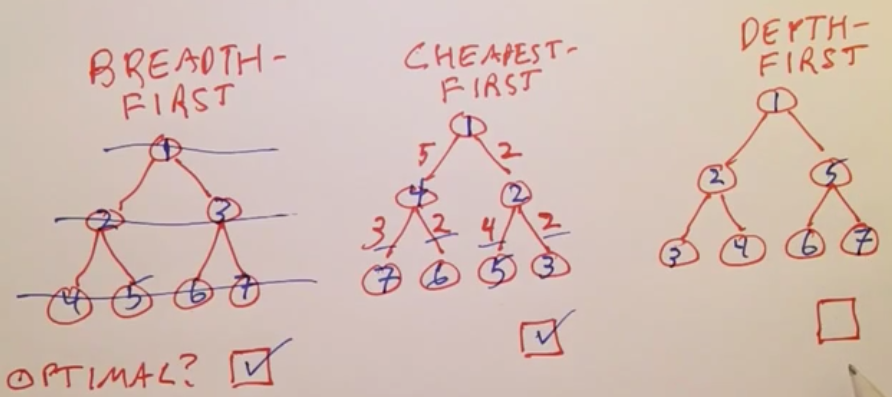 BREADTH-
FIRST
1
2 3
4 5 6 7
OPTIMAL?
CHEAPEST-
FIRST
1
5 2
4 2
3 2 4 2
7 6 5 3
DEPTH-
FIRST
1
2 5
3 4 6 7